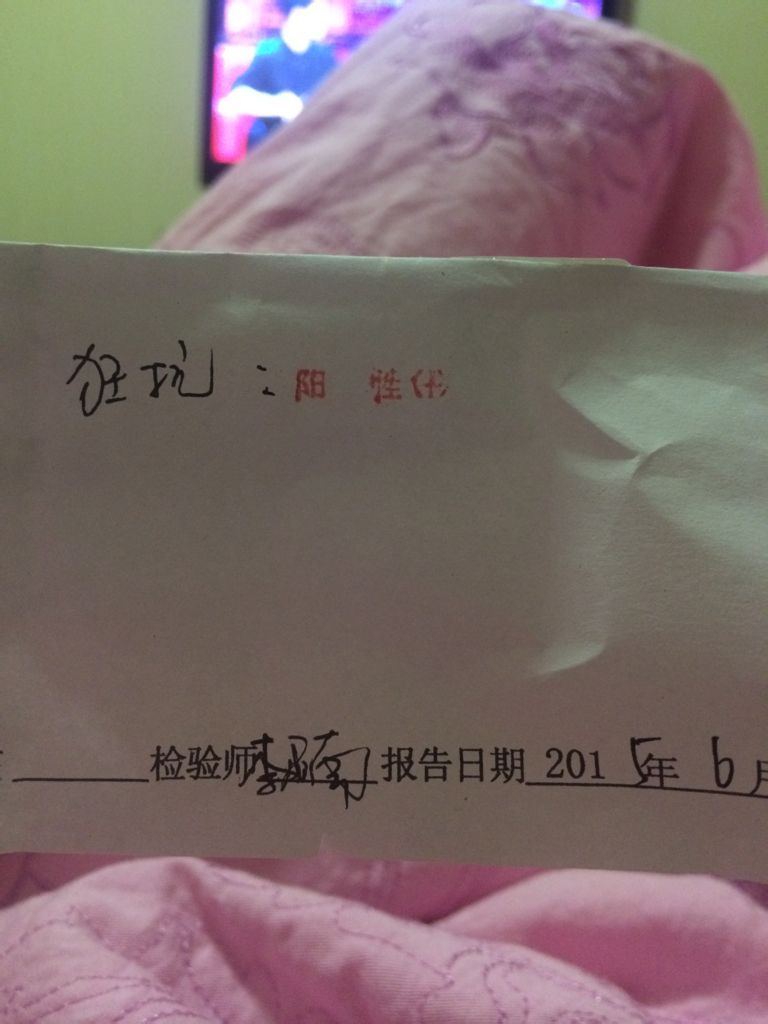 狂抗：阳 性(+)
检验师 报告日期 2015年 6月